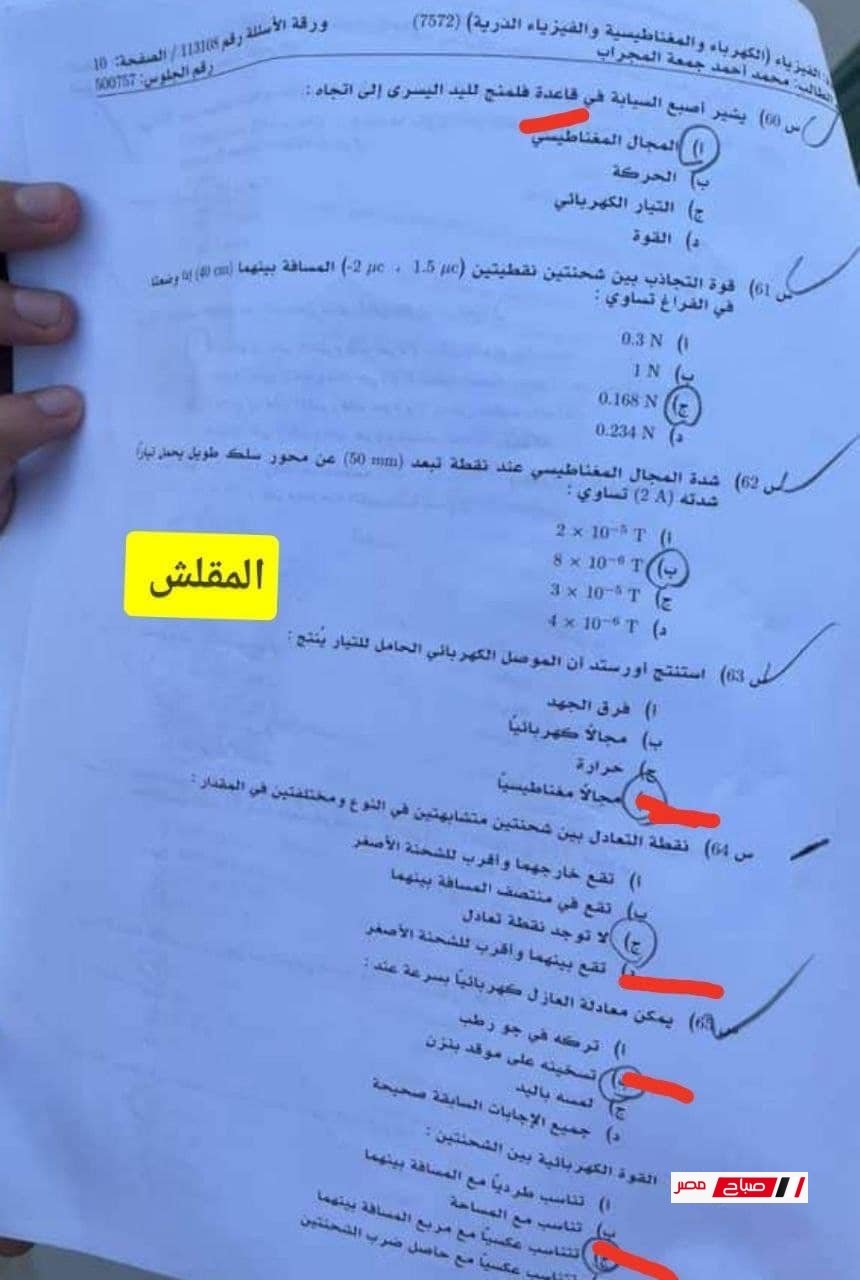 الفيزياء (الكهرباء والمغناطيسية والفيزياء الذرية) (7572)
ورقة الأسئلة رقم 113108 / الصفحة: 10
الطالب: محمد أحمد جمعة المجراب
رقم الجلوس: 500757
س 60) يشير أصبع السبابة في قاعدة فلمنج لليد اليسرى إلى اتجاه :
ا) المجال المغناطيسي
ب) الحركة
ج) التيار الكهربائي
د) القوة
س 61) قوة التجاذب بين شحنتين نقطيتين (-2 μc ، 1.5 μc) المسافة بينهما (40 cm) إذا وضعتا
في الفراغ تساوي :
ا) 0.3 N
ب) 1 N
ج) 0.168 N
د) 0.234 N
س 62) شدة المجال المغناطيسي عند نقطة تبعد (50 mm) عن محور سلك طويل يحمل تياراً
شدته (2 A) تساوي :
ا) 2 × 10⁻⁵ T
ب) 8 × 10⁻⁶ T
ج) 3 × 10⁻⁵ T
د) 4 × 10⁻⁶ T
المقلش
س 63) استنتج أورستد أن الموصل الكهربائي الحامل للتيار يُنتج :
ا) فرق الجهد
ب) مجالاً كهربائياً
ج) حرارة
مجالاً مغناطيسياً
س 64) نقطة التعادل بين شحنتين متشابهتين في النوع ومختلفتين في المقدار :
ا) تقع خارجهما وأقرب للشحنة الأصغر
ب) تقع في منتصف المسافة بينهما
ج) لا توجد نقطة تعادل
د) تقع بينهما وأقرب للشحنة الأصغر
س 65) يمكن معادلة العازل كهربائياً بسرعة عند :
ا) تركه في جو رطب
ب) تسخينه على موقد بنزن
ج) لمسه باليد
د) جميع الإجابات السابقة صحيحة
القوة الكهربائية بين الشحنتين :
ا) تناسب طردياً مع المسافة بينهما
ب) تناسب مع المساحة
ج) تتناسب عكسياً مع مربع المسافة بينهما
تتناسب عكسياً مع حاصل ضرب الشحنتين
صباح مصر